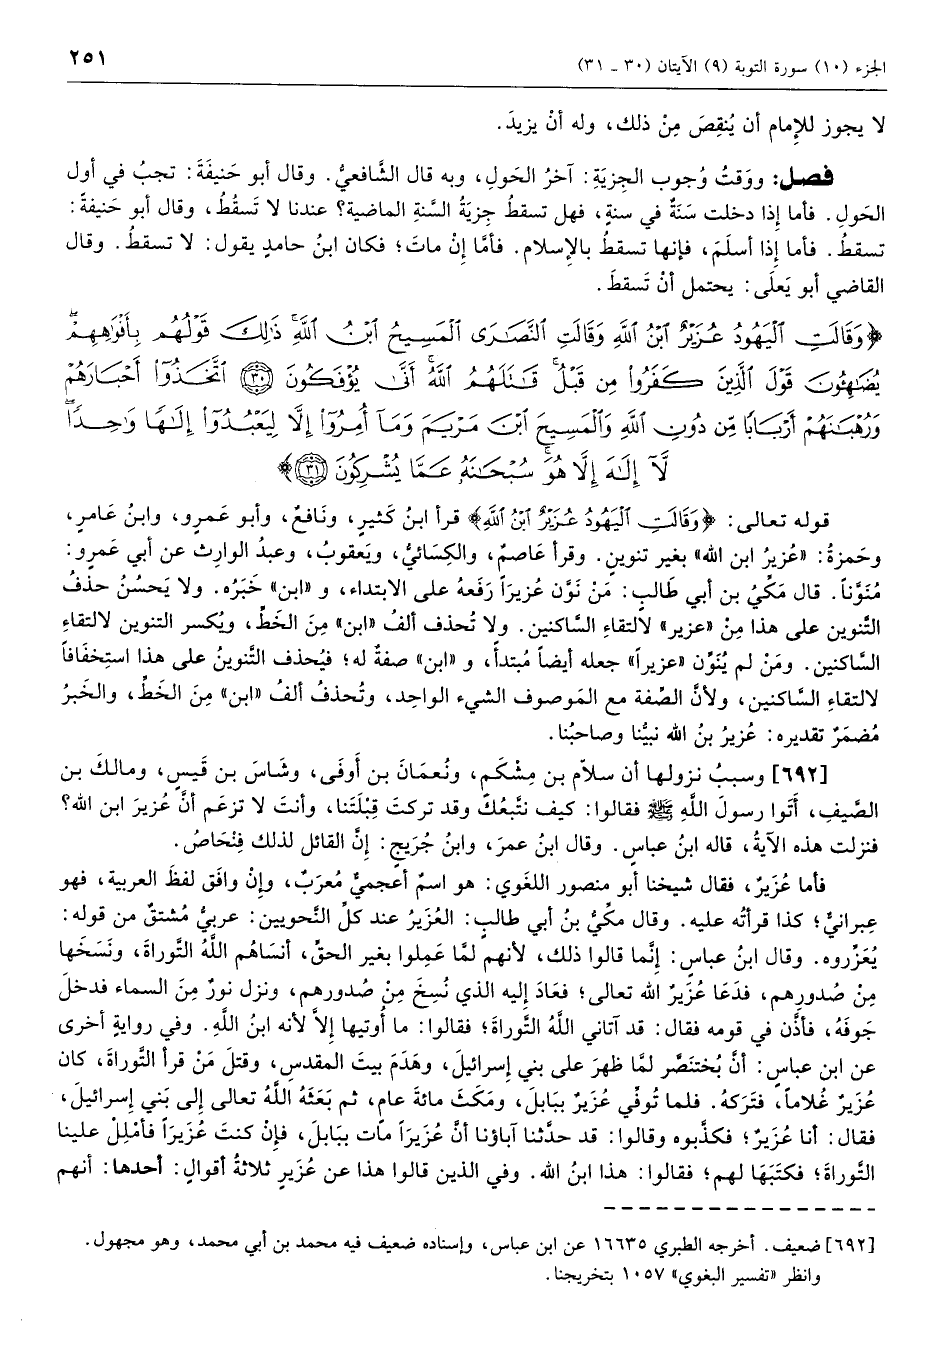 الجزء (١٠) سورة التوبة (٩) الآيتان (٣٠ ـ ٣١)
٢٥١
لا يجوز للإمام أن يُنقِصَ مِنْ ذلك، وله أنْ يزيدَ.
فصل: ووَقتُ وُجوب الجِزيَةِ: آخرُ الحَولِ، وبه قال الشَّافعيُّ. وقال أبو حَنيفَةَ: تجبُ في أول
الحَولِ. فأما إذا دخلت سَنَةٌ في سنةٍ، فهل تسقطُ جِزيَةُ السَّنةِ الماضية؟ عندنا لا تَسقُطُ، وقال أبو حَنيفةَ:
تسقطُ. فأما إذا أسلَمَ، فإنها تسقطُ بالإسلام. فأمَّا إنْ ماتَ؛ فكان ابنُ حامدٍ يقول: لا تسقطُ. وقال
القاضي أبو يَعلَى: يحتمل أنْ تَسقطَ.
﴿وَقَالَتِ ٱلْيَهُودُ عُزَيْرٌ ٱبْنُ ٱللَّهِ وَقَالَتِ ٱلنَّصَٰرَى ٱلْمَسِيحُ ٱبْنُ ٱللَّهِۖ ذَٰلِكَ قَوْلُهُم بِأَفْوَٰهِهِمْۖ
يُضَٰهِـُٔونَ قَوْلَ ٱلَّذِينَ كَفَرُوا۟ مِن قَبْلُۚ قَٰتَلَهُمُ ٱللَّهُۚ أَنَّىٰ يُؤْفَكُونَ ۝٣٠ ٱتَّخَذُوٓا۟ أَحْبَارَهُمْ
وَرُهْبَٰنَهُمْ أَرْبَابًا مِّن دُونِ ٱللَّهِ وَٱلْمَسِيحَ ٱبْنَ مَرْيَمَ وَمَآ أُمِرُوٓا۟ إِلَّا لِيَعْبُدُوٓا۟ إِلَٰهًا وَٰحِدًاۖ
لَّآ إِلَٰهَ إِلَّا هُوَۚ سُبْحَٰنَهُۥ عَمَّا يُشْرِكُونَ ۝٣١﴾
قوله تعالى: ﴿وَقَالَتِ ٱلْيَهُودُ عُزَيْرٌ ٱبْنُ ٱللَّهِ﴾ قرأ ابنُ كثيرٍ، ونَافعٌ، وأبو عَمرٍو، وابنُ عامرٍ،
وحَمزةُ: «عُزيرُ ابن الله» بغير تنوينٍ. وقرأ عَاصمٌ، والكِسَائيُّ، ويَعقوبُ، وعبدُ الوارِثِ عن أبي عَمرٍو:
مُنَوَّناً. قال مَكِّيُّ بن أبي طَالبٍ: مَنْ نَوَّن عُزيرَاً رَفَعهُ على الابتداء، و «ابن» خَبَرُه. ولا يَحسُنُ حذفُ
التَّنوين على هذا مِنْ «عزير» لالتقاءِ السَّاكنين. ولا تُحذف ألفُ «ابن» مِنَ الخَطِّ، ويُكسر التنوين لالتقاءِ
السَّاكنين. ومَنْ لم يُنَوِّن «عزيراً» جعله أيضاً مُبتدأً، و «ابن» صفةٌ له؛ فيُحذف التَّنوينُ على هذا استِخفَافاً
لالتقاء السَّاكنين، ولأنَّ الصِّفة مع المَوصوف الشيء الواحِد، وتُحذفُ ألفُ «ابن» مِنَ الخَطِّ، والخَبرُ
مُضمَرٌ تقديره: عُزيرُ بنُ الله نبيُّنا وصاحبُنا.
[٦٩٢] وسببُ نزولها أن سلاَّم بن مِشكَمٍ، ونُعمَانَ بن أَوفَى، وشَاسَ بن قَيسٍ، ومالكَ بن
الصَّيفِ، أَتَوا رسولَ اللَّهِ ﷺ فقالوا: كيف نتَّبعُكَ وقد تركتَ قِبْلَتَنا، وأنتَ لا تزعَم أنَّ عُزيرَ ابن الله؟
فنزلت هذه الآيةُ، قاله ابنُ عباسٍ. وقال ابنُ عمرَ، وابنُ جُرَيجٍ: إنَّ القائل لذلك فِنْحَاصُ.
فأما عُزَيرٌ، فقال شيخنا أبو منصور اللغَوي: هو اسمٌ أعجميٌّ مُعرَبٌ، وإنْ وافَق لفظَ العربية، فهو
عِبرانيٌّ؛ كذا قرأتُه عليه. وقال مكِّيُّ بنُ أبي طالبٍ: العُزَيرُ عند كلِّ النَّحويين: عربيٌّ مُشتقٌ من قوله:
يُعَزِّروه. وقال ابنُ عباسٍ: إنَّما قالوا ذلك، لأنهم لمَّا عَمِلوا بغير الحقِّ، أنسَاهُم اللَّهُ التَّوراةَ، ونَسَخَها
مِنْ صُدورِهم، فدَعَا عُزَيرٌ الله تعالى؛ فعَادَ إليه الذي نُسِخَ مِنْ صُدورهم، ونزل نورٌ مِنَ السماء فدخلَ
جَوفَهُ، فأذَّن في قومه فقال: قد آتاني اللَّهُ التَّوراةَ؛ فقالوا: ما أُوتيها إلاَّ لأنه ابنُ اللَّهِ. وفي روايةٍ أخرى
عن ابن عباسٍ: أنَّ بُختَنَصَّر لمَّا ظهرَ على بني إسرائيلَ، وهَدَمَ بيتَ المقدسِ، وقتلَ مَنْ قرأ التَّوراةَ، كان
عُزيرٌ غُلاماً، فتَركَهُ. فلما تُوفِّي عُزيرٌ ببَابلَ، ومَكَثَ مائةَ عامٍ، ثم بَعَثَهُ اللَّهُ تعالى إلى بَني إسرائيلَ،
فقال: أنا عُزيرٌ؛ فكذَّبوه وقالوا: قد حدَّثنا آباؤنا أنَّ عُزيرَاً مات ببَابلَ، فإنْ كنتَ عُزيرَاً فأمْلِلْ علينا
التَّوراةَ؛ فكتَبَهَا لهم؛ فقالوا: هذا ابنُ الله. وفي الذين قالوا هذا عن عُزَيرٍ ثلاثةُ أقوالٍ: أحدها: أنهم
[٦٩٢] ضعيف. أخرجه الطبري ١٦٦٣٥ عن ابن عباس، وإسناده ضعيف فيه محمد بن أبي محمد، وهو مجهول.
وانظر «تفسير البغوي» ١٠٥٧ بتخريجنا.